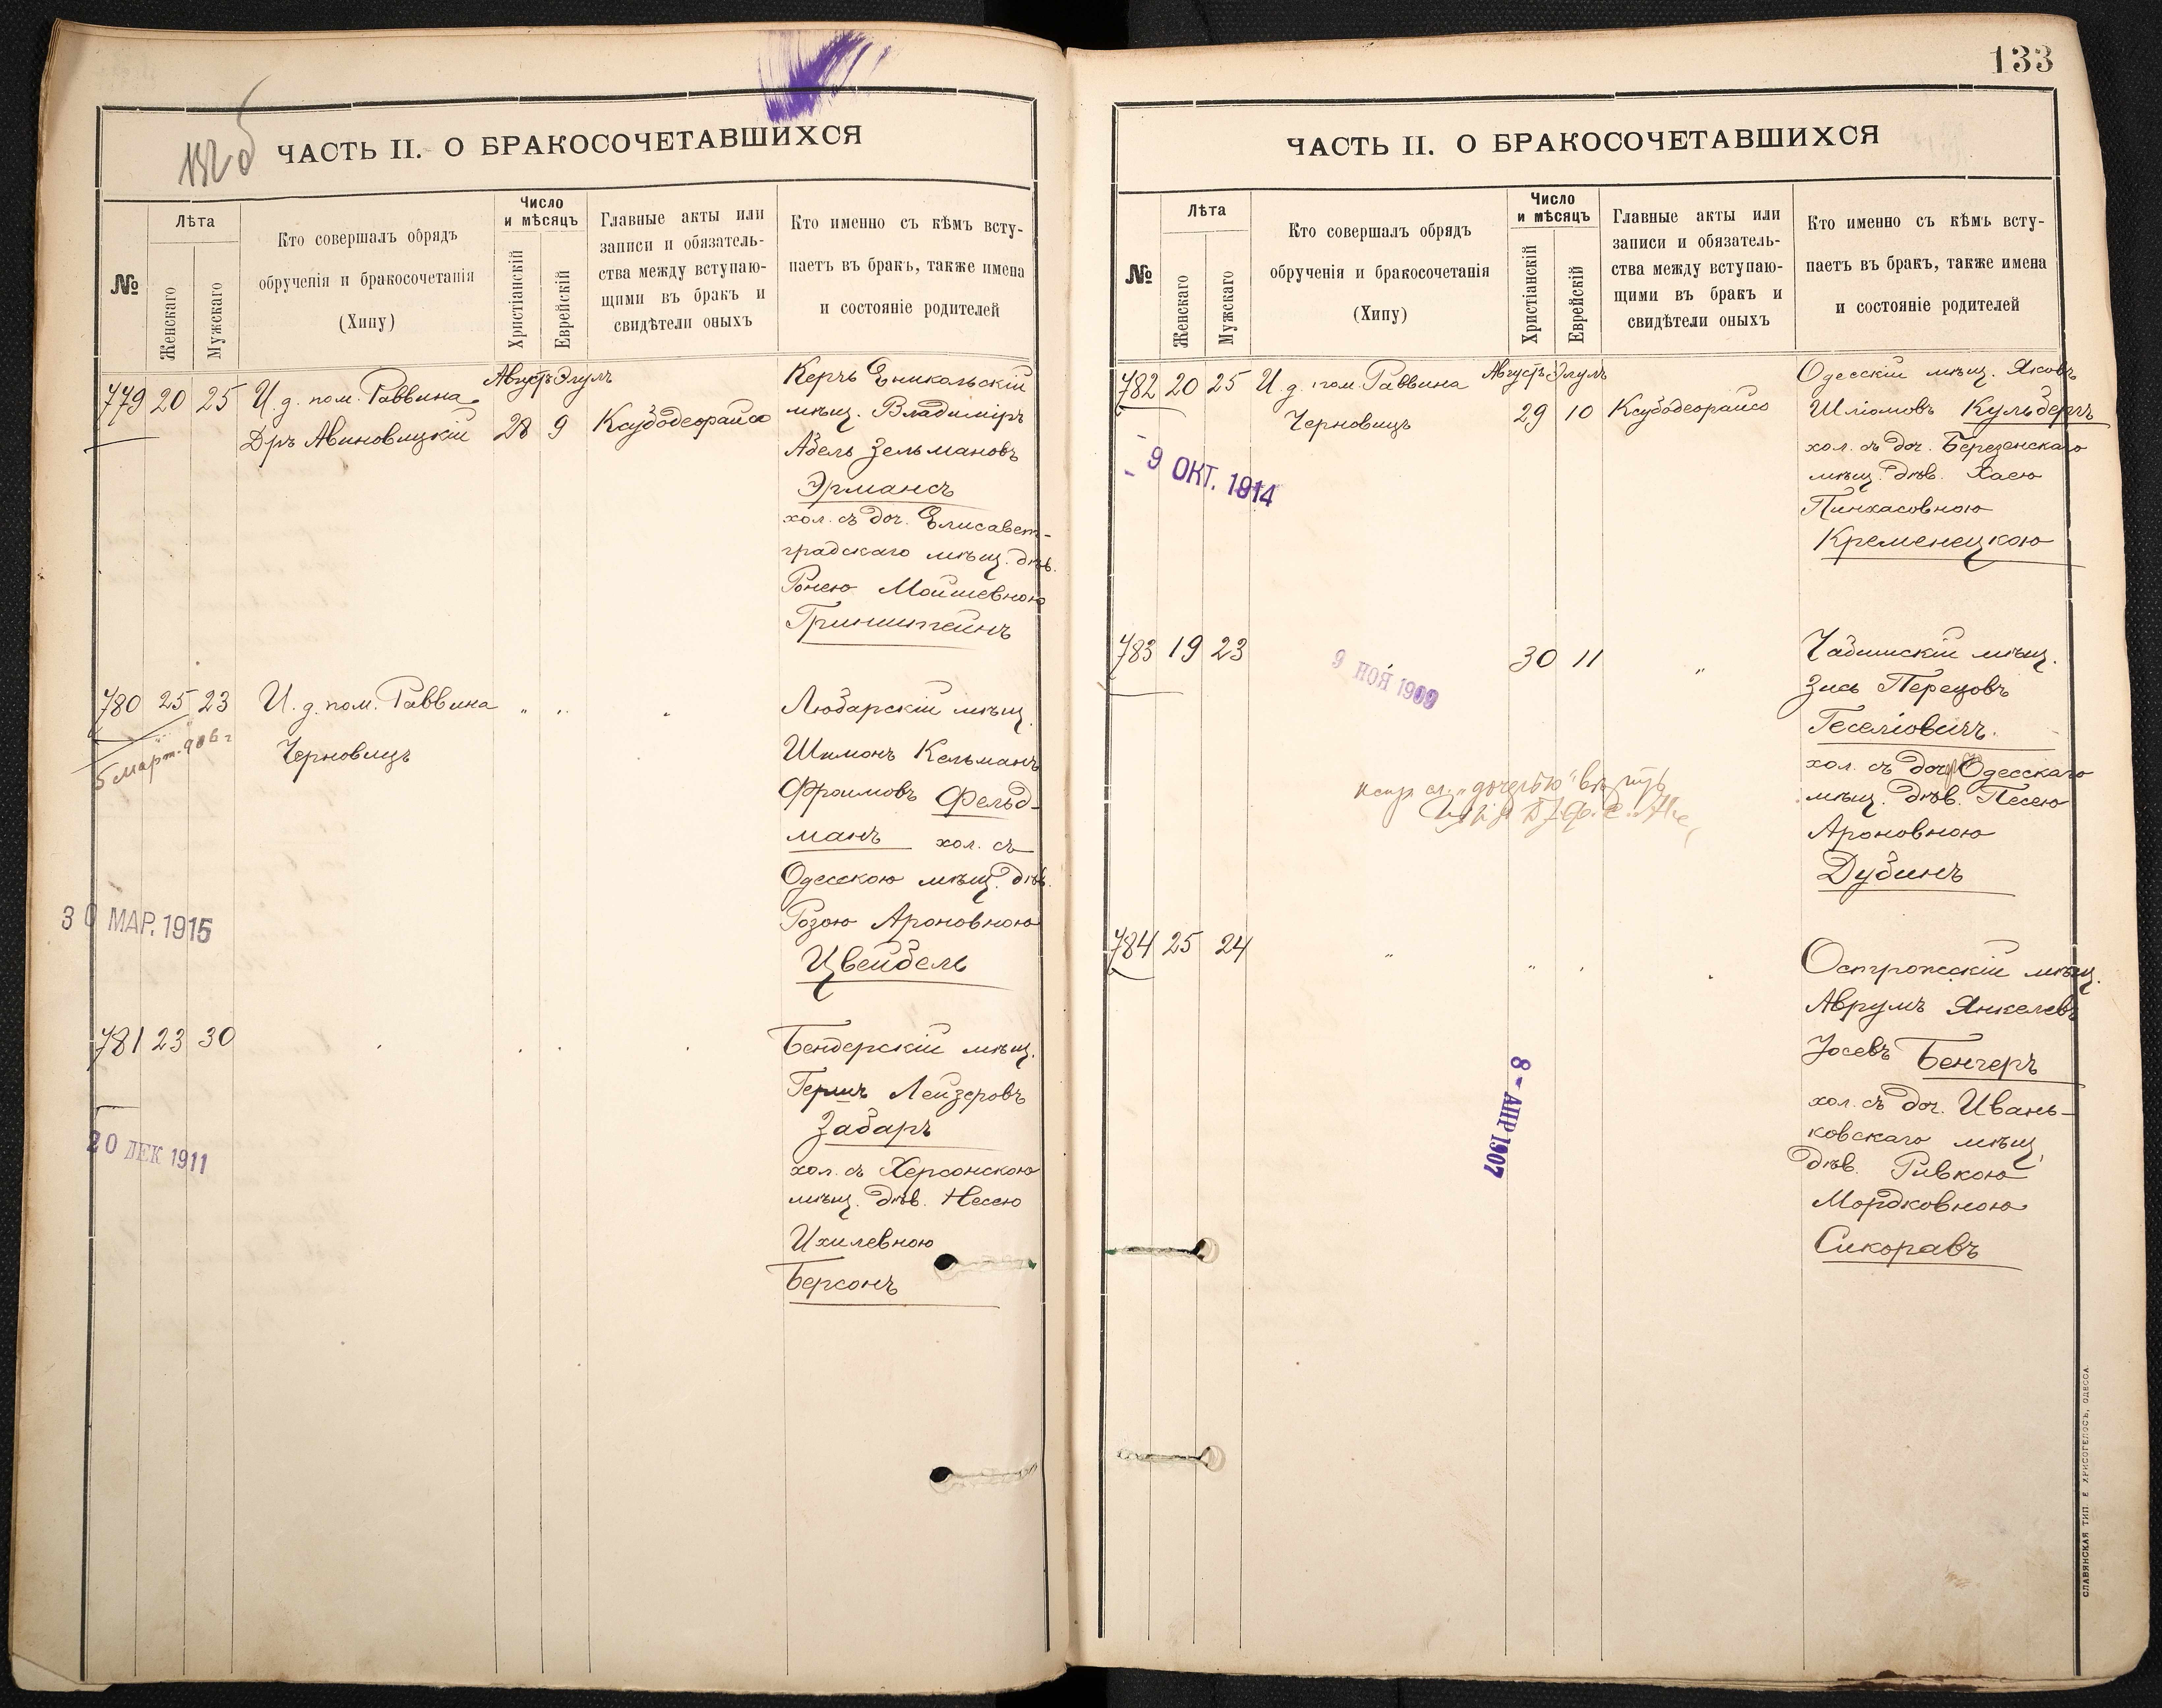 132б
ЧАСТЬ II. О БРАКОСОЧЕТАВШИХСЯ
№
Лѣта
Женскаго
Мужскаго
Кто совершалъ обрядъ
обрученія и бракосочетанія
(Хипу)
Число
и мѣсяцъ
Христіанскій
Еврейскій
Главные акты или
записи и обязатель-
ства между вступаю-
щими въ бракъ и
свидѣтели оныхъ
Кто именно съ кѣмъ всту-
паетъ въ бракъ, также имена
и состояніе родителей
779 20 25 И. д. пом. Раввина
Дръ Авиновицкій
Августъ Элулъ
28 9 Ксубодеорайсо
Керчь Еникольскій
мѣщ. Владиміръ
Абель Зельмановъ
Эрмансъ
хол. съ доч. Елисавет-
градскаго мѣщ. дѣв.
Ронею Мойшевною
Гринштейнъ
780 25 23 И. д. пом. Раввина " " "
Черновицъ
5 март. 906 г
30 МАР. 1915
Любарскій мѣщ.
Шимонъ Кельманъ
Фроимовъ Фельд-
манъ хол. съ
Одесскою мѣщ. дѣв.
Розою Ароновною
Цвейбель
781 23 30
20 ДЕК 1911
Бендерскій мѣщ.
Гершъ Лейзеровъ
Забаръ
хол. съ Херсонскою
мѣщ. дѣв. Несею
Ихилевною
Берсонъ
133
ЧАСТЬ II. О БРАКОСОЧЕТАВШИХСЯ
№
Лѣта
Женскаго
Мужскаго
Кто совершалъ обрядъ
обрученія и бракосочетанія
(Хипу)
Число
и мѣсяцъ
Христіанскій
Еврейскій
Главные акты или
записи и обязатель-
ства между вступаю-
щими въ бракъ и
свидѣтели оныхъ
Кто именно съ кѣмъ всту-
паетъ въ бракъ, также имена
и состояніе родителей
782 20 25 И. д. пом. Раввина
Черновицъ
Августъ Элулъ
29 10 Ксубодеорайсо
- 9 ОКТ. 1914
Одесскій мѣщ. Яковъ
Шліомовъ Кульбергъ
хол. съ доч. Березенскаго
мѣщ. дѣв. Хаею
Пинхасовною
Кременецкою
783 19 23 30 11 "
9 НОЯ 1909
Чадишскій мѣщ.
Зись Перецовъ
Геселіовичъ.
хол. съ доч. Одесскаго
мѣщ. дѣв. Песею
Ароновною
Дубинъ
784 25 24 " " "
8 - АПР 1907
Острожскій мѣщ.
Аврумъ Янкелевъ
Іосевъ Бенгеръ
хол. съ доч. Ивань-
ковскаго мѣщ.
дѣв. Ривкою
Мордковною
Сикоравъ
СЛАВЯНСКАЯ ТИП. Е. ХРИСОГЕЛОСЪ, ОДЕССА.